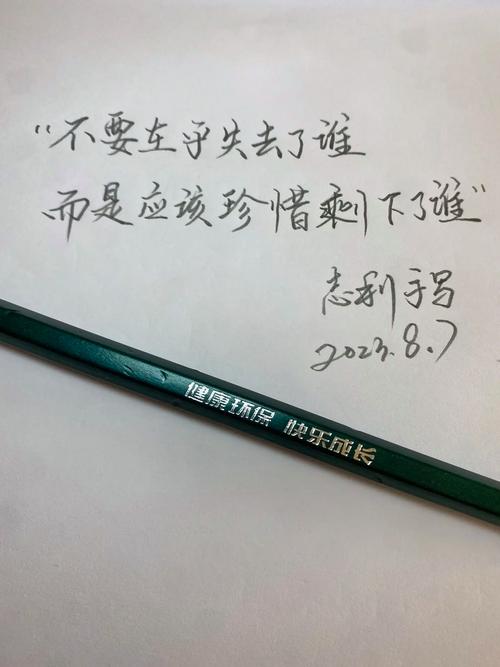 “不要在乎失去了谁
而是应该珍惜剩下了谁”
志利手写
2023.8.7
健康环保 快乐成长